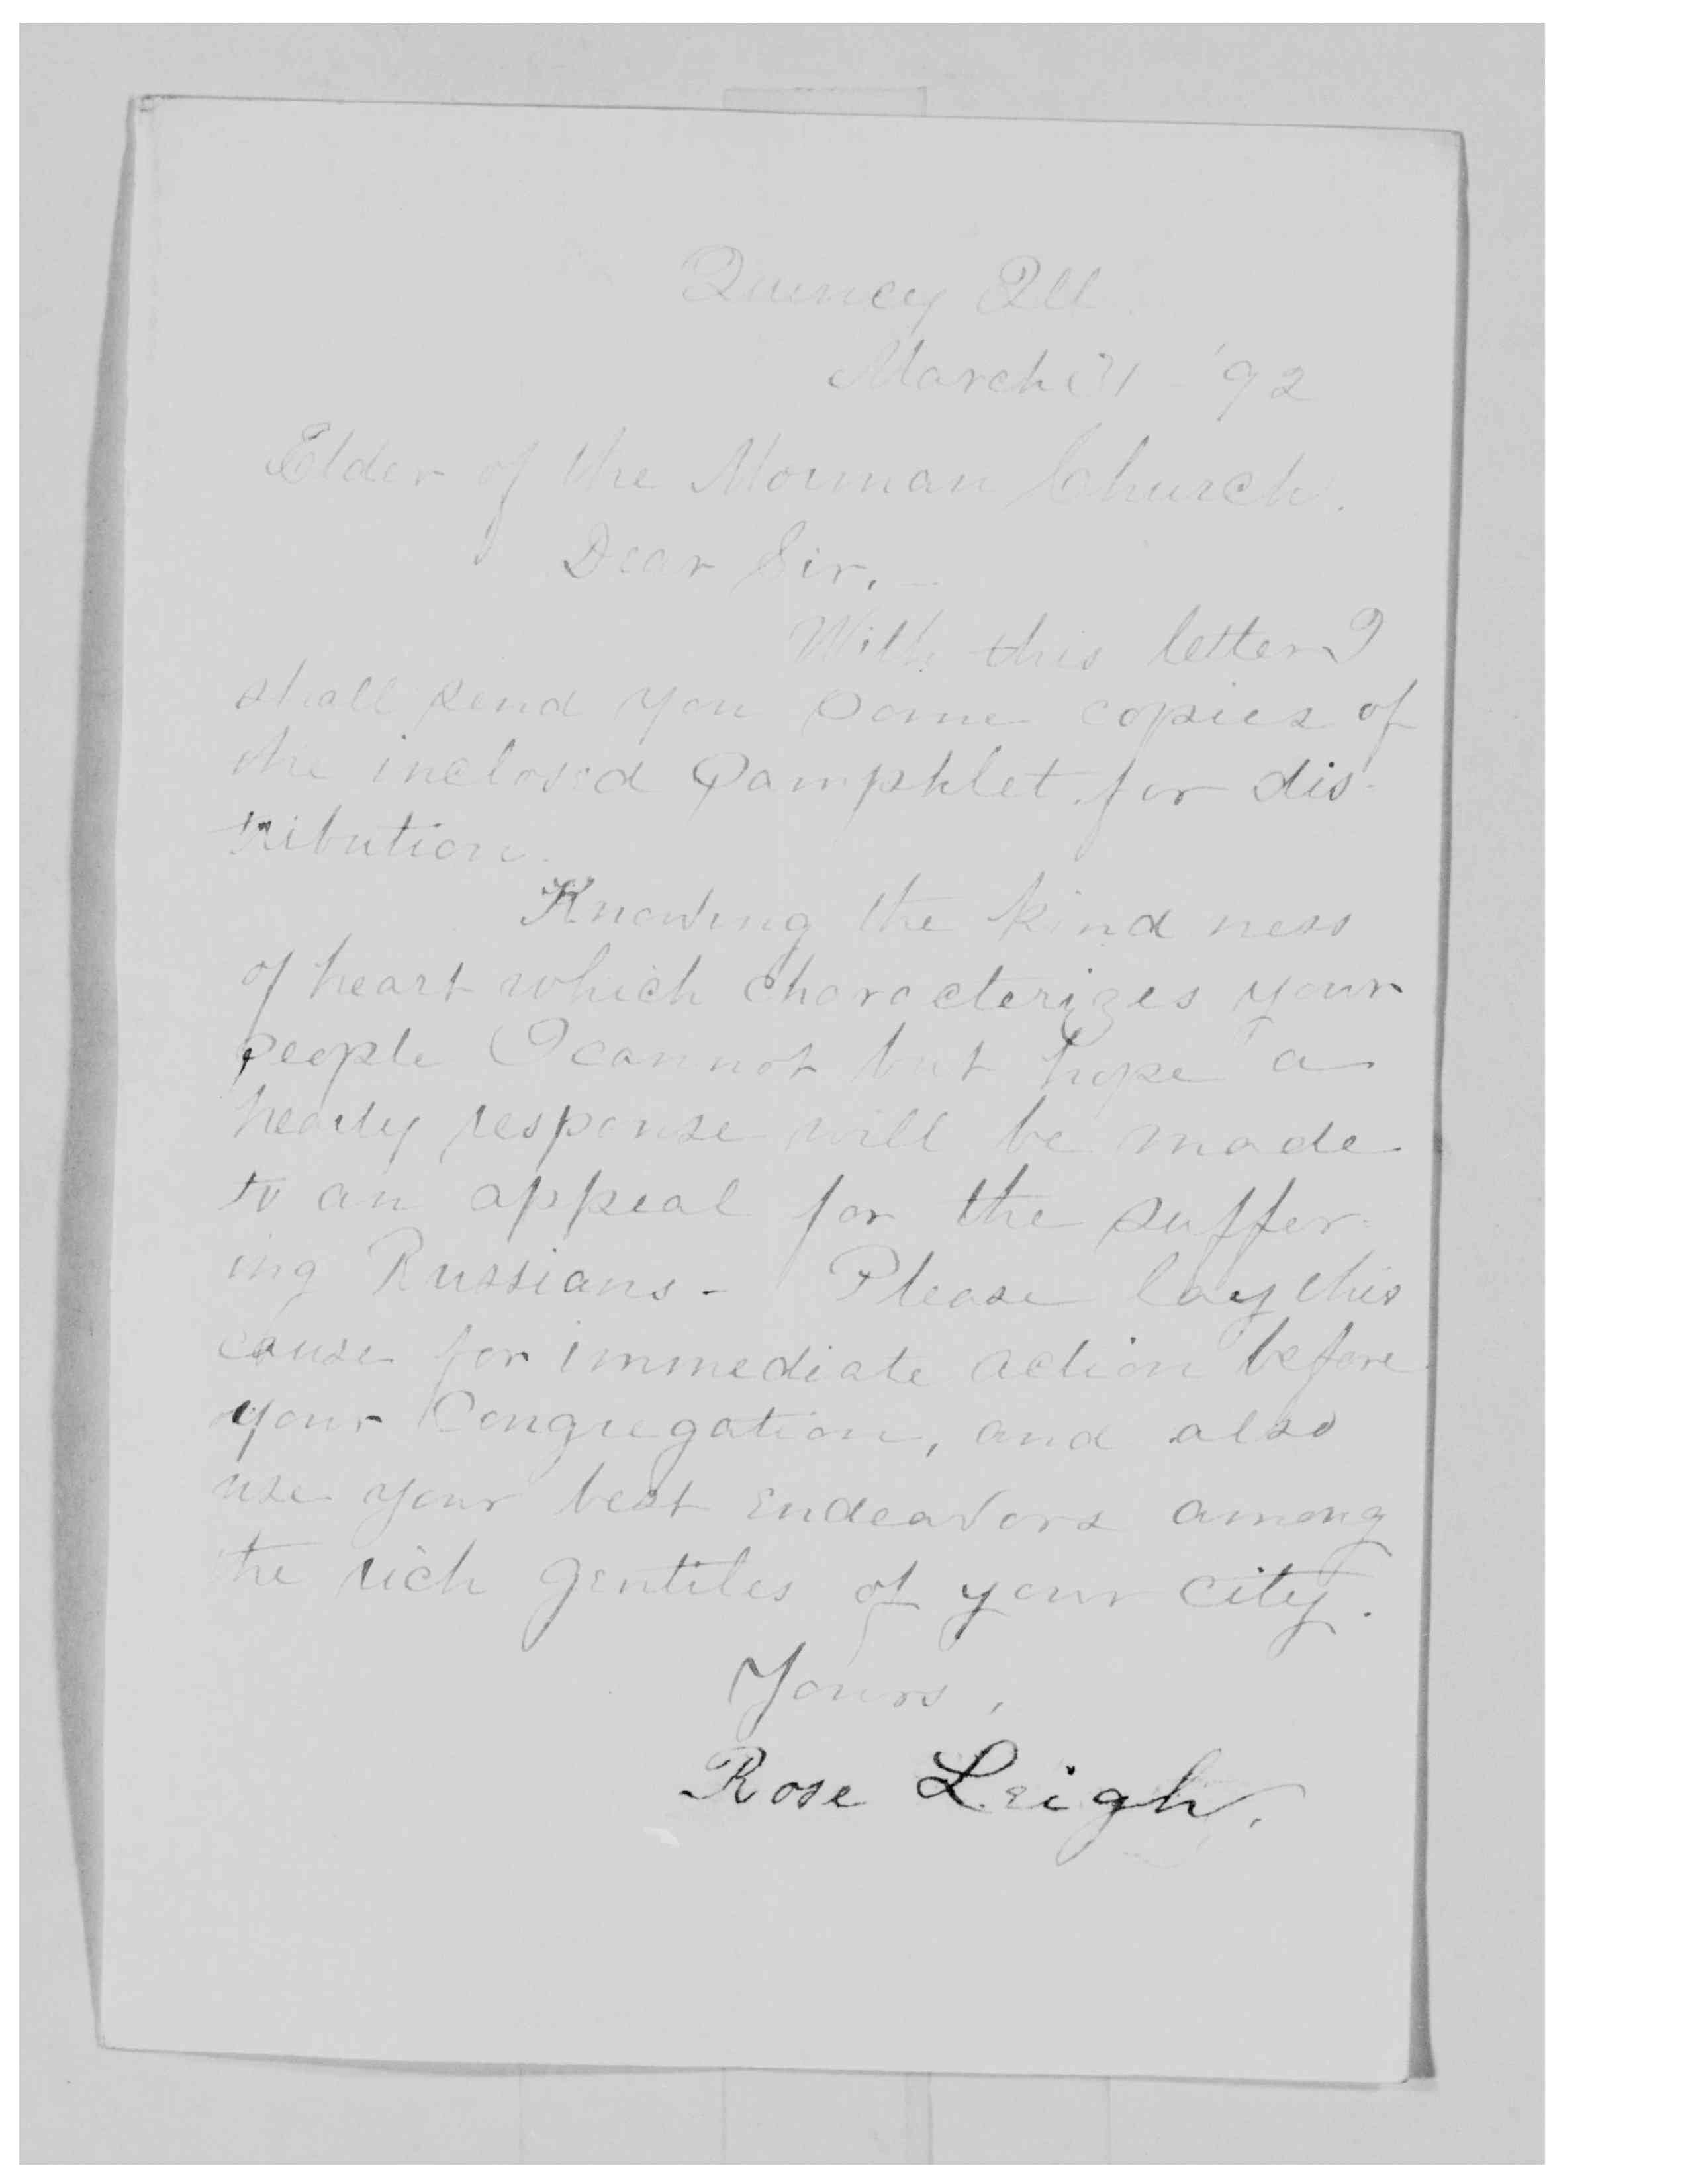 Quincy Ill.
March 31 - '92
Elder of the Morman Church.
Dear Sir, –
With this letter I
shall send you some copies of
the inclosed Pamphlet for dis-
tribution.
Knowing the kind ness
of heart which characterizes your
people I cannot but hope a
hearty response will be made
to an appeal for the suffer-
ing Russians - Please lay this
cause for immediate action before
your Congregation, and also
use your best endeavors among
the rich gentiles of your city.
Yours,
Rose Leigh.